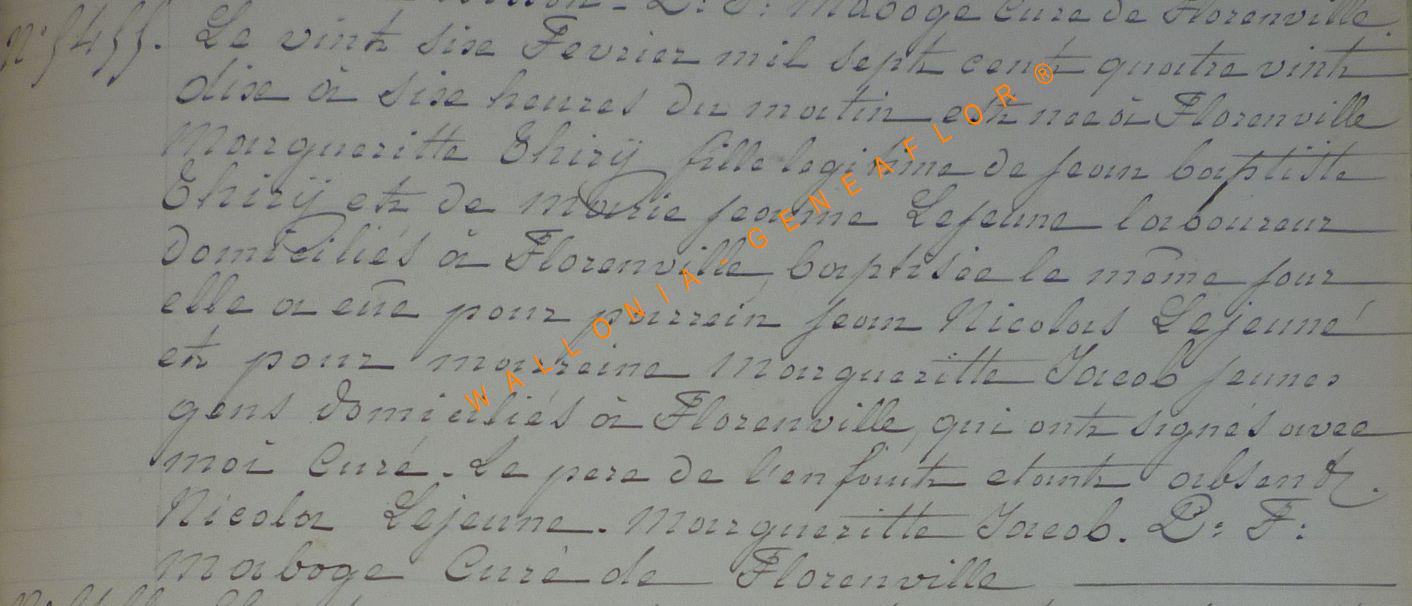 D: F: Maboge Cure de Florenville.
N° 5455. Le vint six Fevrier mil sept cent quatre vint
dix à six heures du matin est nee à Florenville
Margueritte Thirÿ fille legitime de jean baptiste
Thirÿ et de marie jeanne Lejeune laboureur
domiciliés à Florenville, baptisée le même jour
elle a eüe pour parrein jean Nicolas Lejeune
et pour marreine Margueritte Jacob jeunes
gens domiciliés à Florenville, qui ont signés avec
moi Curé. Le pere de l'enfant etant absent.
Nicola Lejeune. Margueritte Jacob. D: F:
Maboge Curé de Florenville
WALLONIA - GENEAFLOR ®